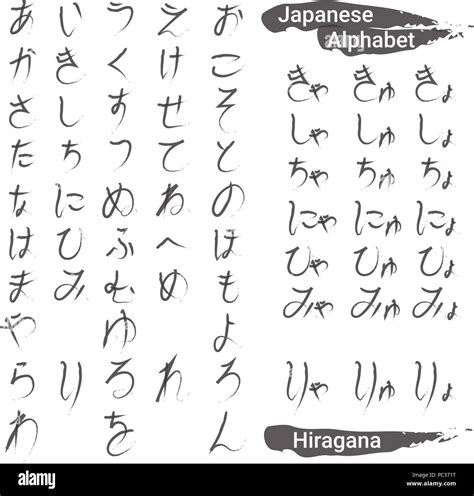 Japanese
Alphabet
あ い う え お
か き く け こ
さ し す せ そ
た ち つ て と
な に ぬ ね の
は ひ ふ へ ほ
ま み む め も
や ゆ よ
ら り る れ ろ
わ を ん
きゃ きゅ きょ
しゃ しゅ しょ
ちゃ ちゅ ちょ
にゃ にゅ にょ
ひゃ ひゅ ひょ
みゃ みゅ みょ
りゃ りゅ りょ
Hiragana
alamy
Image ID: PC371T
www.alamy.com